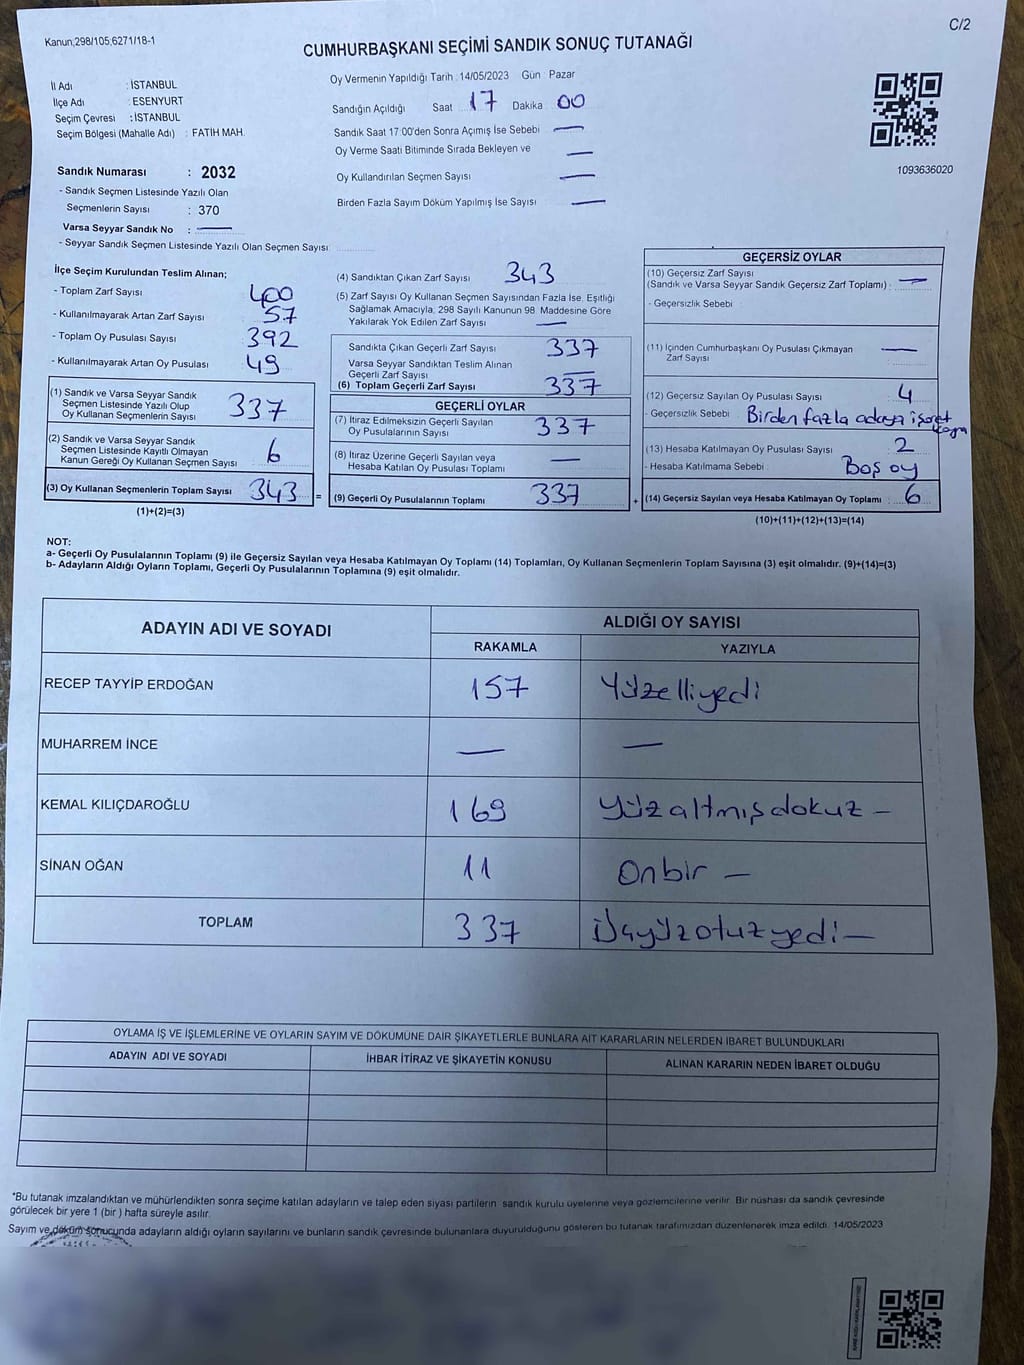 Kanun,298/105,6271/18-1
C/2
CUMHURBAŞKANI SEÇİMİ SANDIK SONUÇ TUTANAĞI
İl Adı : İSTANBUL
İlçe Adı : ESENYURT
Seçim Çevresi : İSTANBUL
Seçim Bölgesi (Mahalle Adı) : FATİH MAH.
Sandık Numarası : 2032
- Sandık Seçmen Listesinde Yazılı Olan
Seçmenlerin Sayısı : 370
Varsa Seyyar Sandık No : —
- Seyyar Sandık Seçmen Listesinde Yazılı Olan Seçmen Sayısı
Oy Vermenin Yapıldığı Tarih : 14/05/2023 Gün : Pazar
Sandığın Açıldığı Saat 17 Dakika 00
Sandık Saat 17:00'den Sonra Açımış İse Sebebi —
Oy Verme Saati Bitiminde Sırada Bekleyen ve —
Oy Kullandırılan Seçmen Sayısı —
Birden Fazla Sayım Döküm Yapılmış İse Sayısı —
1093636020
İlçe Seçim Kurulundan Teslim Alınan;
- Toplam Zarf Sayısı 400
- Kullanılmayarak Artan Zarf Sayısı 57
- Toplam Oy Pusulası Sayısı 392
- Kullanılmayarak Artan Oy Pusulası 49
(1) Sandık ve Varsa Seyyar Sandık
Seçmen Listesinde Yazılı Olup
Oy Kullanan Seçmenlerin Sayısı 337
(2) Sandık ve Varsa Seyyar Sandık
Seçmen Listesinde Kayıtlı Olmayan
Kanun Gereği Oy Kullanan Seçmen Sayısı 6
(3) Oy Kullanan Seçmenlerin Toplam Sayısı 343 =
(1)+(2)=(3)
(4) Sandıktan Çıkan Zarf Sayısı 343
(5) Zarf Sayısı Oy Kullanan Seçmen Sayısından Fazla İse, Eşitliği
Sağlamak Amacıyla, 298 Sayılı Kanunun 98. Maddesine Göre
Yakılarak Yok Edilen Zarf Sayısı —
Sandıkta Çıkan Geçerli Zarf Sayısı 337
Varsa Seyyar Sandıktan Teslim Alınan
Geçerli Zarf Sayısı —
(6) Toplam Geçerli Zarf Sayısı 337
GEÇERLİ OYLAR
(7) İtiraz Edilmeksizin Geçerli Sayılan
Oy Pusulalarının Sayısı 337
(8) İtiraz Üzerine Geçerli Sayılan veya
Hesaba Katılan Oy Pusulası Toplamı —
(9) Geçerli Oy Pusulalarının Toplamı 337 +
GEÇERSİZ OYLAR
(10) Geçersiz Zarf Sayısı
(Sandık ve Varsa Seyyar Sandık Geçersiz Zarf Toplamı) : —
- Geçersizlik Sebebi :
(11) İçinden Cumhurbaşkanı Oy Pusulası Çıkmayan
Zarf Sayısı —
(12) Geçersiz Sayılan Oy Pusulası Sayısı 4
- Geçersizlik Sebebi : Birden fazla adaya işaret
(13) Hesaba Katılmayan Oy Pusulası Sayısı 2
- Hesaba Katılmama Sebebi : Boş oy
(14) Geçersiz Sayılan veya Hesaba Katılmayan Oy Toplamı : 6
(10)+(11)+(12)+(13)=(14)
NOT:
a- Geçerli Oy Pusulalarının Toplamı (9) ile Geçersiz Sayılan veya Hesaba Katılmayan Oy Toplamı (14) Toplamları, Oy Kullanan Seçmenlerin Toplam Sayısına (3) eşit olmalıdır. (9)+(14)=(3)
b- Adayların Aldığı Oyların Toplamı, Geçerli Oy Pusulalarının Toplamına (9) eşit olmalıdır.
ADAYIN ADI VE SOYADI
ALDIĞI OY SAYISI
RAKAMLA YAZIYLA
RECEP TAYYİP ERDOĞAN 157 Yüzelliyedi
MUHARREM İNCE — —
KEMAL KILIÇDAROĞLU 169 Yüzaltmışdokuz —
SİNAN OĞAN 11 Onbir —
TOPLAM 337 Üçyüzotuzyedi —
OYLAMA İŞ VE İŞLEMLERİNE VE OYLARIN SAYIM VE DÖKÜMÜNE DAİR ŞİKAYETLERLE BUNLARA AİT KARARLARIN NELERDEN İBARET BULUNDUKLARI
ADAYIN ADI VE SOYADI İHBAR İTİRAZ VE ŞİKAYETİN KONUSU ALINAN KARARIN NEDEN İBARET OLDUĞU
*Bu tutanak imzalandıktan ve mühürlendikten sonra seçime katılan adayların ve talep eden siyasi partilerin sandık kurulu üyelerine veya gözlemcilerine verilir. Bir nüshası da sandık çevresinde
görülecek bir yere 1 (bir ) hafta süreyle asılır.
Sayım ve döküm sonucunda adayların aldığı oyların sayılarını ve bunların sandık çevresinde bulunanlara duyurulduğunu gösteren bu tutanak tarafımızdan düzenlenerek imza edildi. 14/05/2023